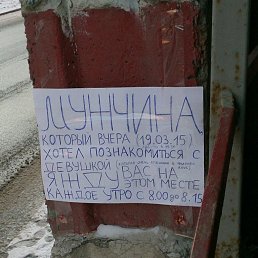 МУЖЧИНА
КОТОРЫЙ ВЧЕРА (19.03.15)
ХОТЕЛ ПОЗНАКОМИТЬСЯ С
ДЕВУШКОЙ
Я ЖДУ ВАС НА
ЭТОМ МЕСТЕ
КАЖДОЕ УТРО С 8.00 ДО 8.15